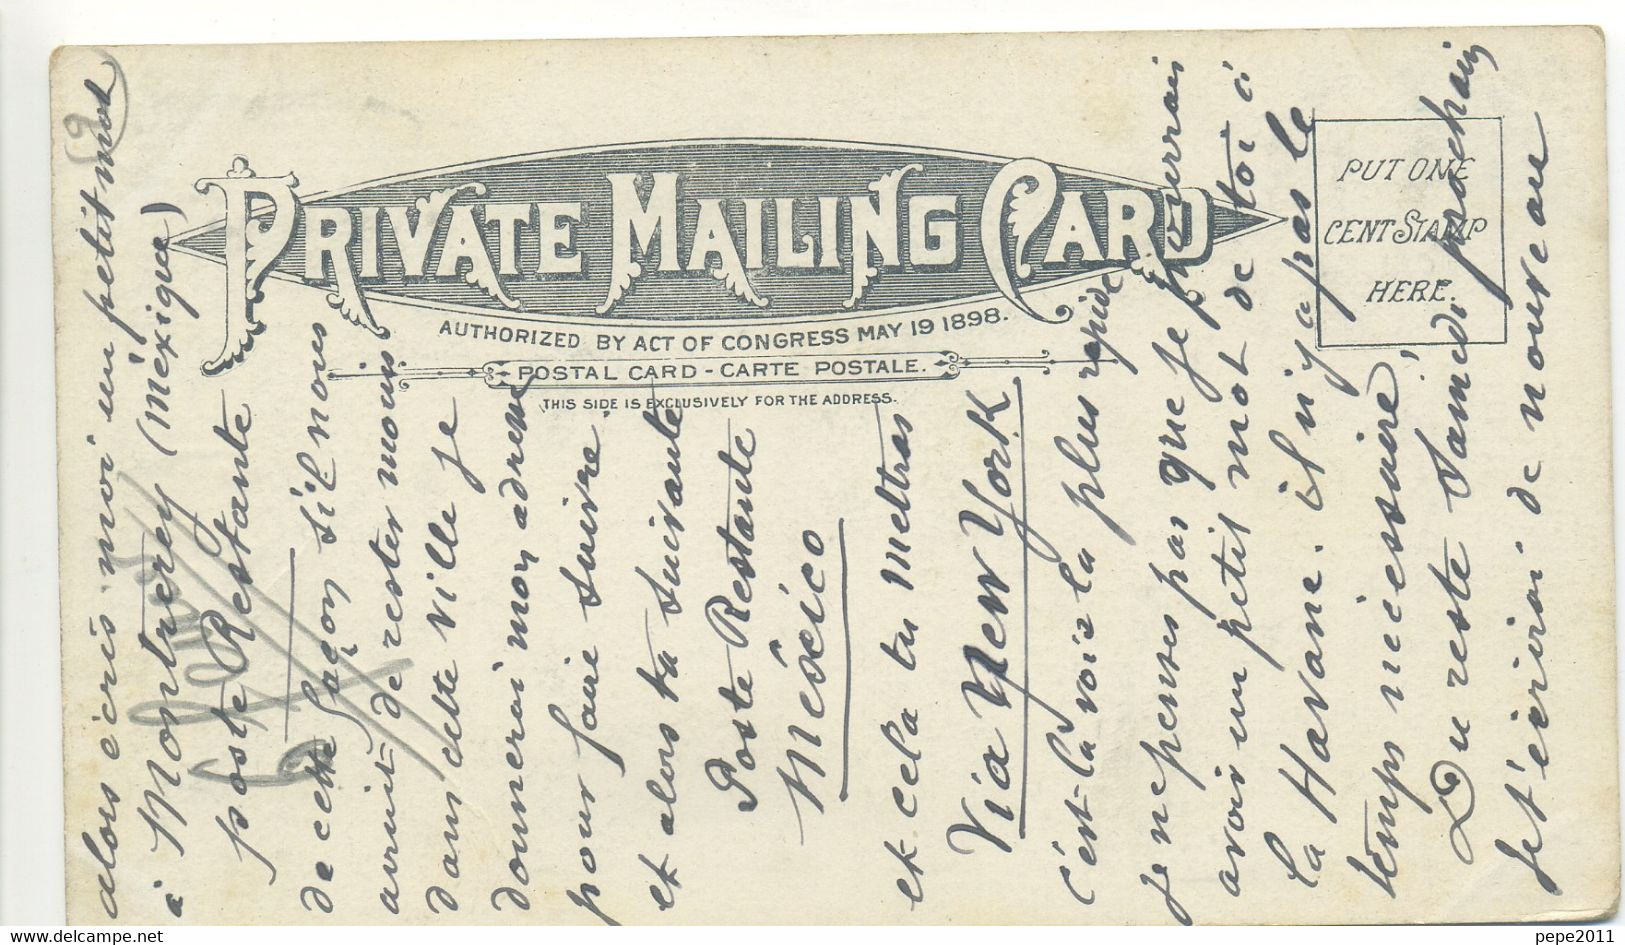 PRIVATE MAILING CARD
AUTHORIZED BY ACT OF CONGRESS MAY 19 1898.
POSTAL CARD - CARTE POSTALE.
THIS SIDE IS EXCLUSIVELY FOR THE ADDRESS.
PUT ONE
CENT STAMP
HERE.
alors écris moi un petit mot
à Montrerey (Méxique)
poste Restante
de cette façon s'il nous
arrivit de rester moins
dans cette ville je
donnerai mon adresse
pour faire suivre
et alors ta suivante
Poste Restante
México
et cela tu mettras
Via New York
c'est la voie la plus rapide
Je ne penses pas que je pourrais
avoir un petit mot de toi ici
la Havane. il n'y a pas le
temps nécessaire,
Du reste Samedi prochain
Je t'écrirai de nouveau
www.delcampe.net
pepe2011